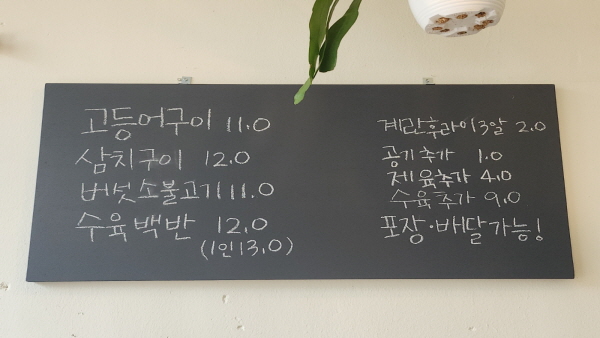 고등어구이 11.0
삼치구이 12.0
버섯소불고기 11.0
수육백반 12.0
(1인 13.0)
계란후라이 3알 2.0
공기추가 1.0
제육추가 4.0
수육추가 9.0
포장·배달가능!